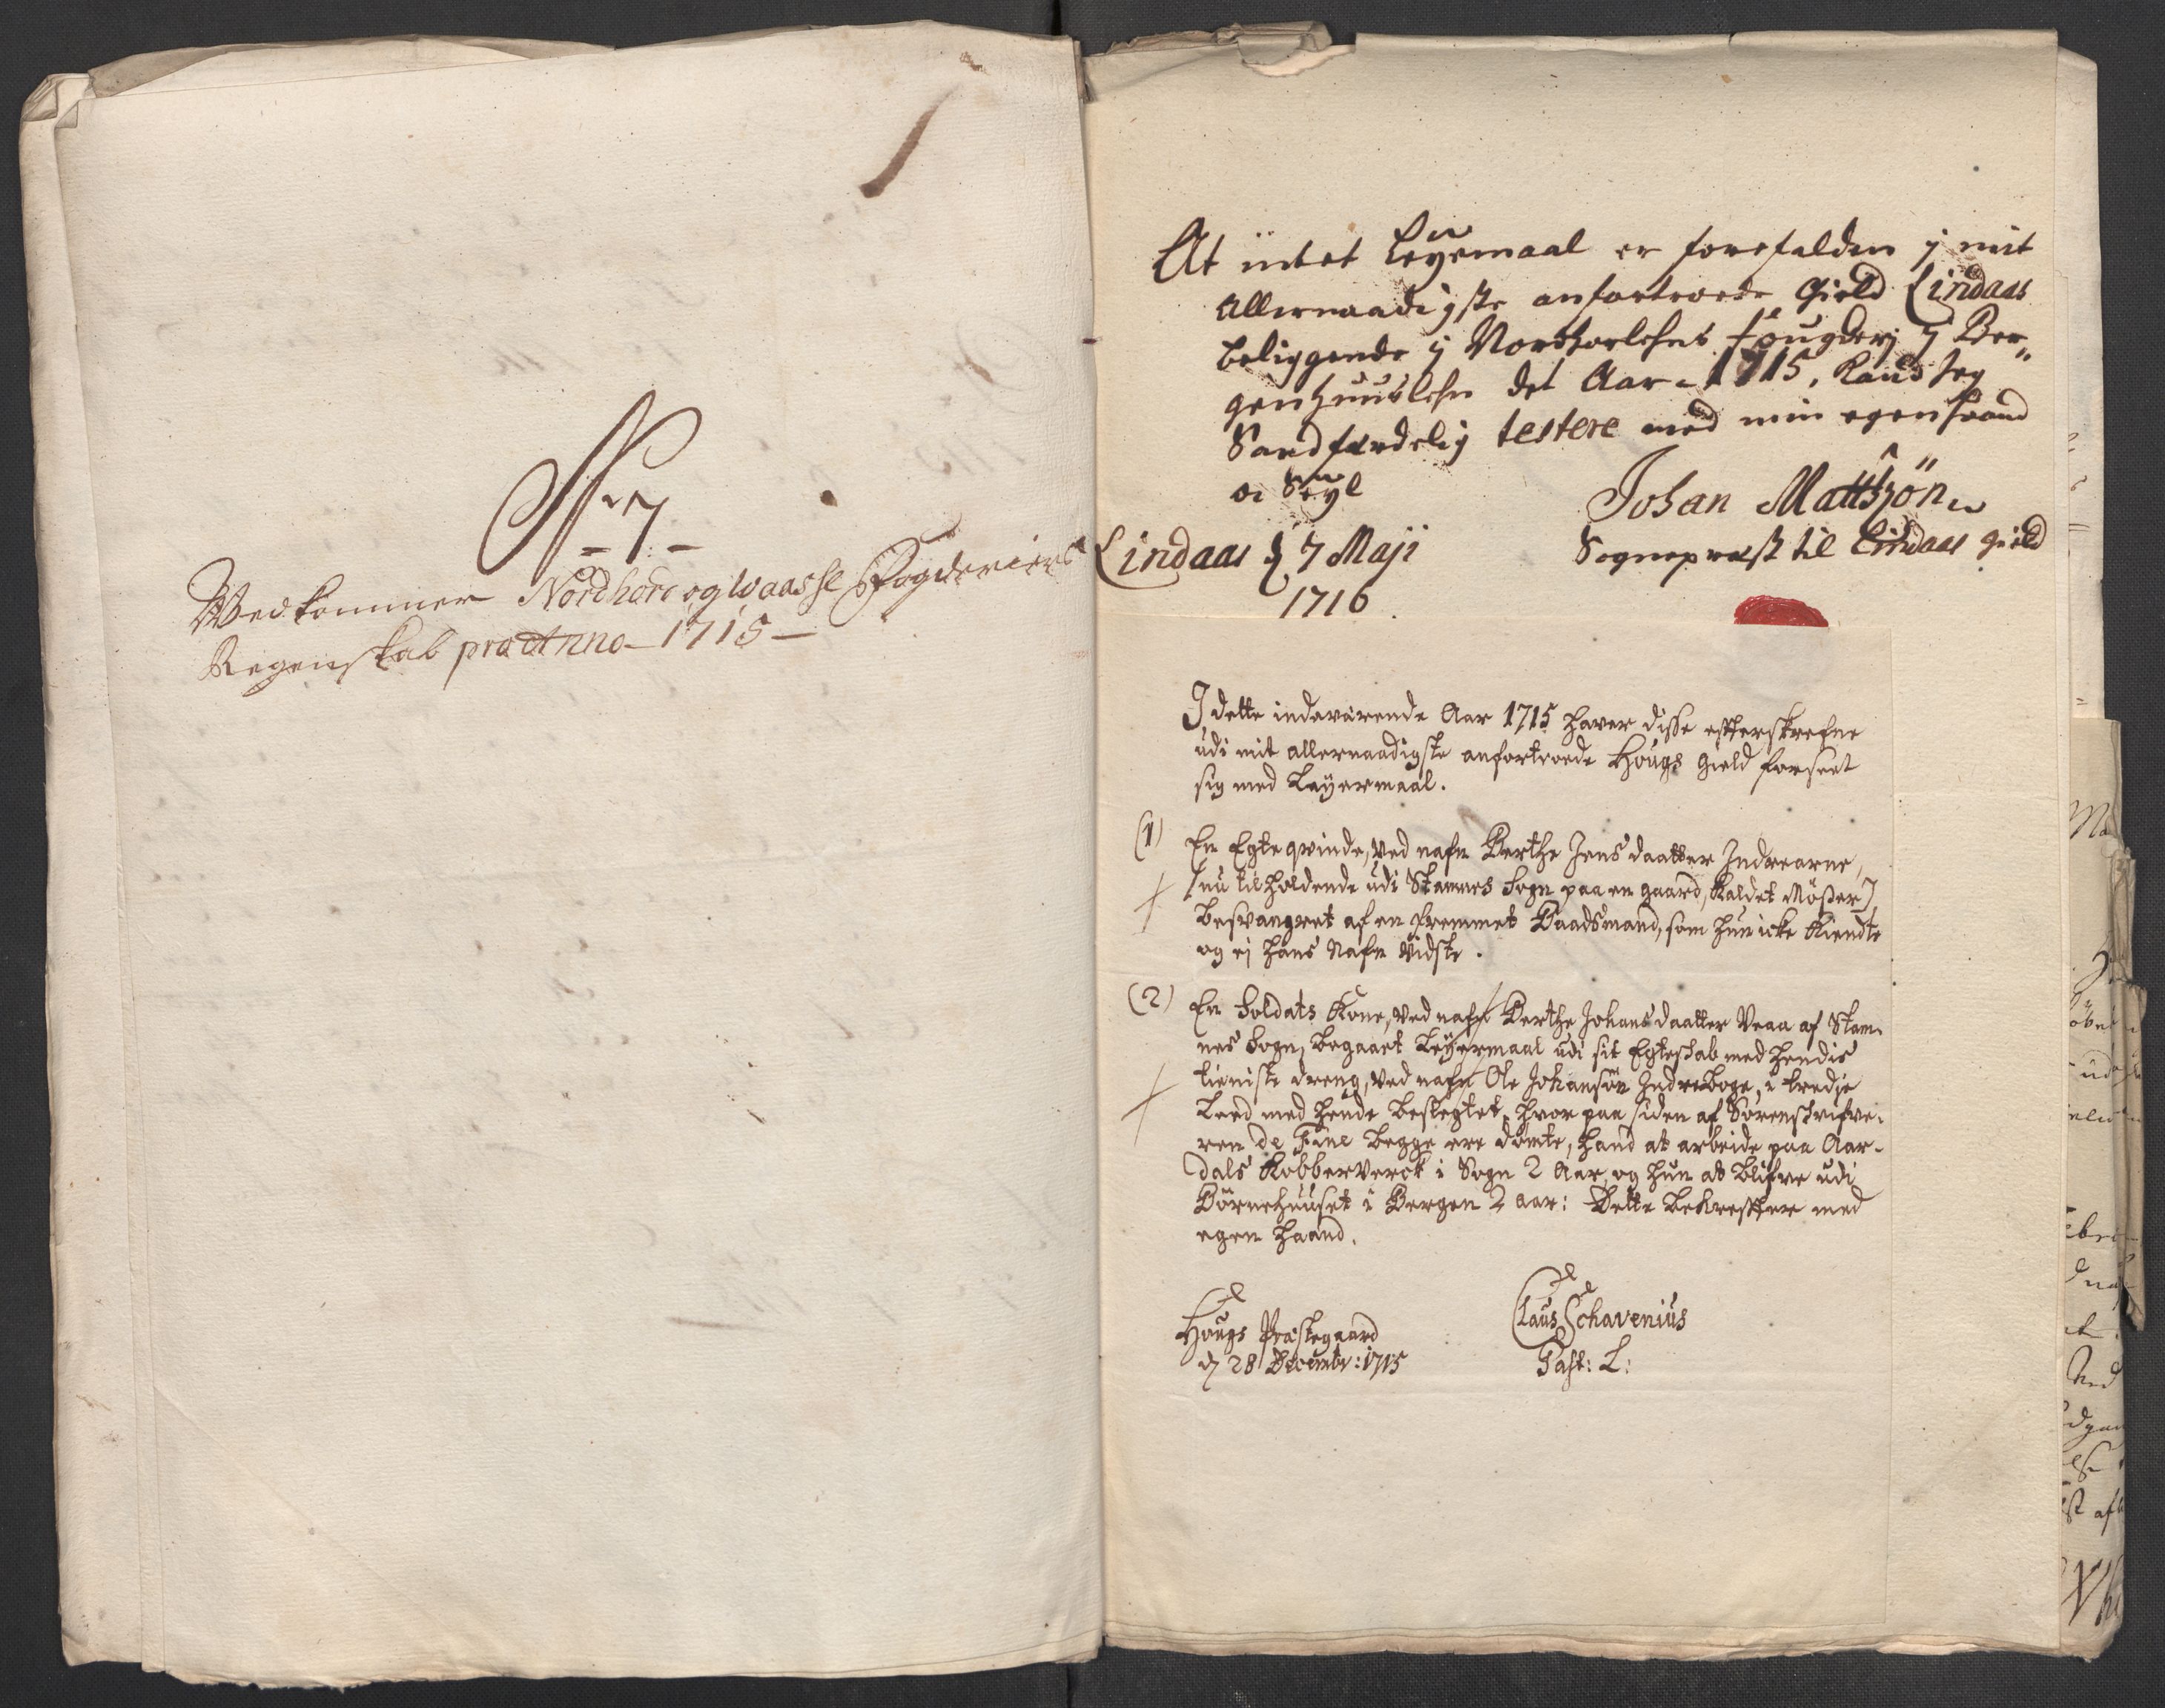 No 7.
Vedkommer Nordhore og Waasse Fogderiers
Regenskab pro Anno 1715
At intet Leyemaal er forefalden j mit
allernaadigste anfortroede Gield Lindaas
beliggende j Nordhorlehns fougderj j Ber„
genhuuslehn det Aar 1715, kand Jeg
Sandfærdelig testere med min egen haand
oc Seyl
Johan Mattssön
Sognepræst til Lindaas gield
Lindaas d 7 Maji
1716
I dette indeværende Aar 1715 hafver disse efterskrefne
udi mit allernaadigste anfortroede Hougs gield forseet
sig med Leyermaal.
(1) En Egte qvinde, ved nafn Berthe Jens daatter Indrearne,
(nu tilholdende udi Stamnes Sogn paa en gaard, kaldet Mösser)
besvangret af en fremmet Baadsmand, som hun icke kiendte
og ej hans Nafn vidste.
(2) En Soldats Kone, ved nafn Berthe Johans daatter Veaa af Stam-
nes Sogn, begaaet Leyermaal udi sit Egteskab med hendis
tieniste dreng, ved nafn Ole Johansön Indreboge, i tredje
Leed med hende beslegtet, hvor paa siden af Sorenskrifve-
ren de Fine begge ere dömte, hand at arbeide paa Aar-
dals Kobberverck i Sogn 2 Aar, og hun at blifve udi
Börnehuuset i Bergen 2 aar: Dette bekreffter med
egen haand.
Hougs Præstegaard
d 28 Decembr: 1715
Claus Schavenius
Past: L: